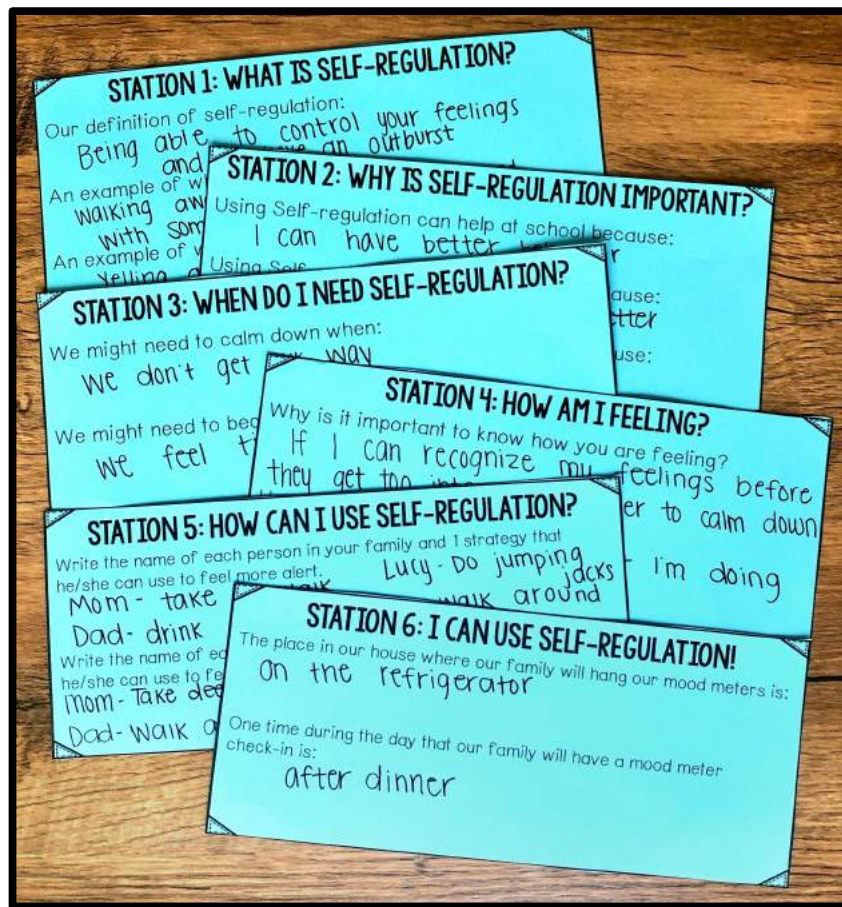 STATION 1: WHAT IS SELF-REGULATION?
Our definition of self-regulation:
Being able to control your feelings
and an outburst
An example of
walking
with
An example of
Yelling
STATION 2: WHY IS SELF-REGULATION IMPORTANT?
Using Self-regulation can help at school because:
I can have better
Using
STATION 3: WHEN DO I NEED SELF-REGULATION?
We might need to calm down when:
we don't get way
We might need to
we feel
STATION 4: HOW AM I FEELING?
Why is it important to know how you are feeling?
If I can recognize my feelings before
they get too
to calm down
I'm doing
STATION 5: HOW CAN I USE SELF-REGULATION?
Write the name of each person in your family and 1 strategy that
he/she can use to feel more alert.
Lucy- Do jumping
jacks
Mom- take
walk around
Dad- drink
Write the name of
he/she can use to
Mom- Take
Dad- Walk
STATION 6: I CAN USE SELF-REGULATION!
The place in our house where our family will hang our mood meters is:
on the refrigerator
One time during the day that our family will have a mood meter
check-in is:
after dinner